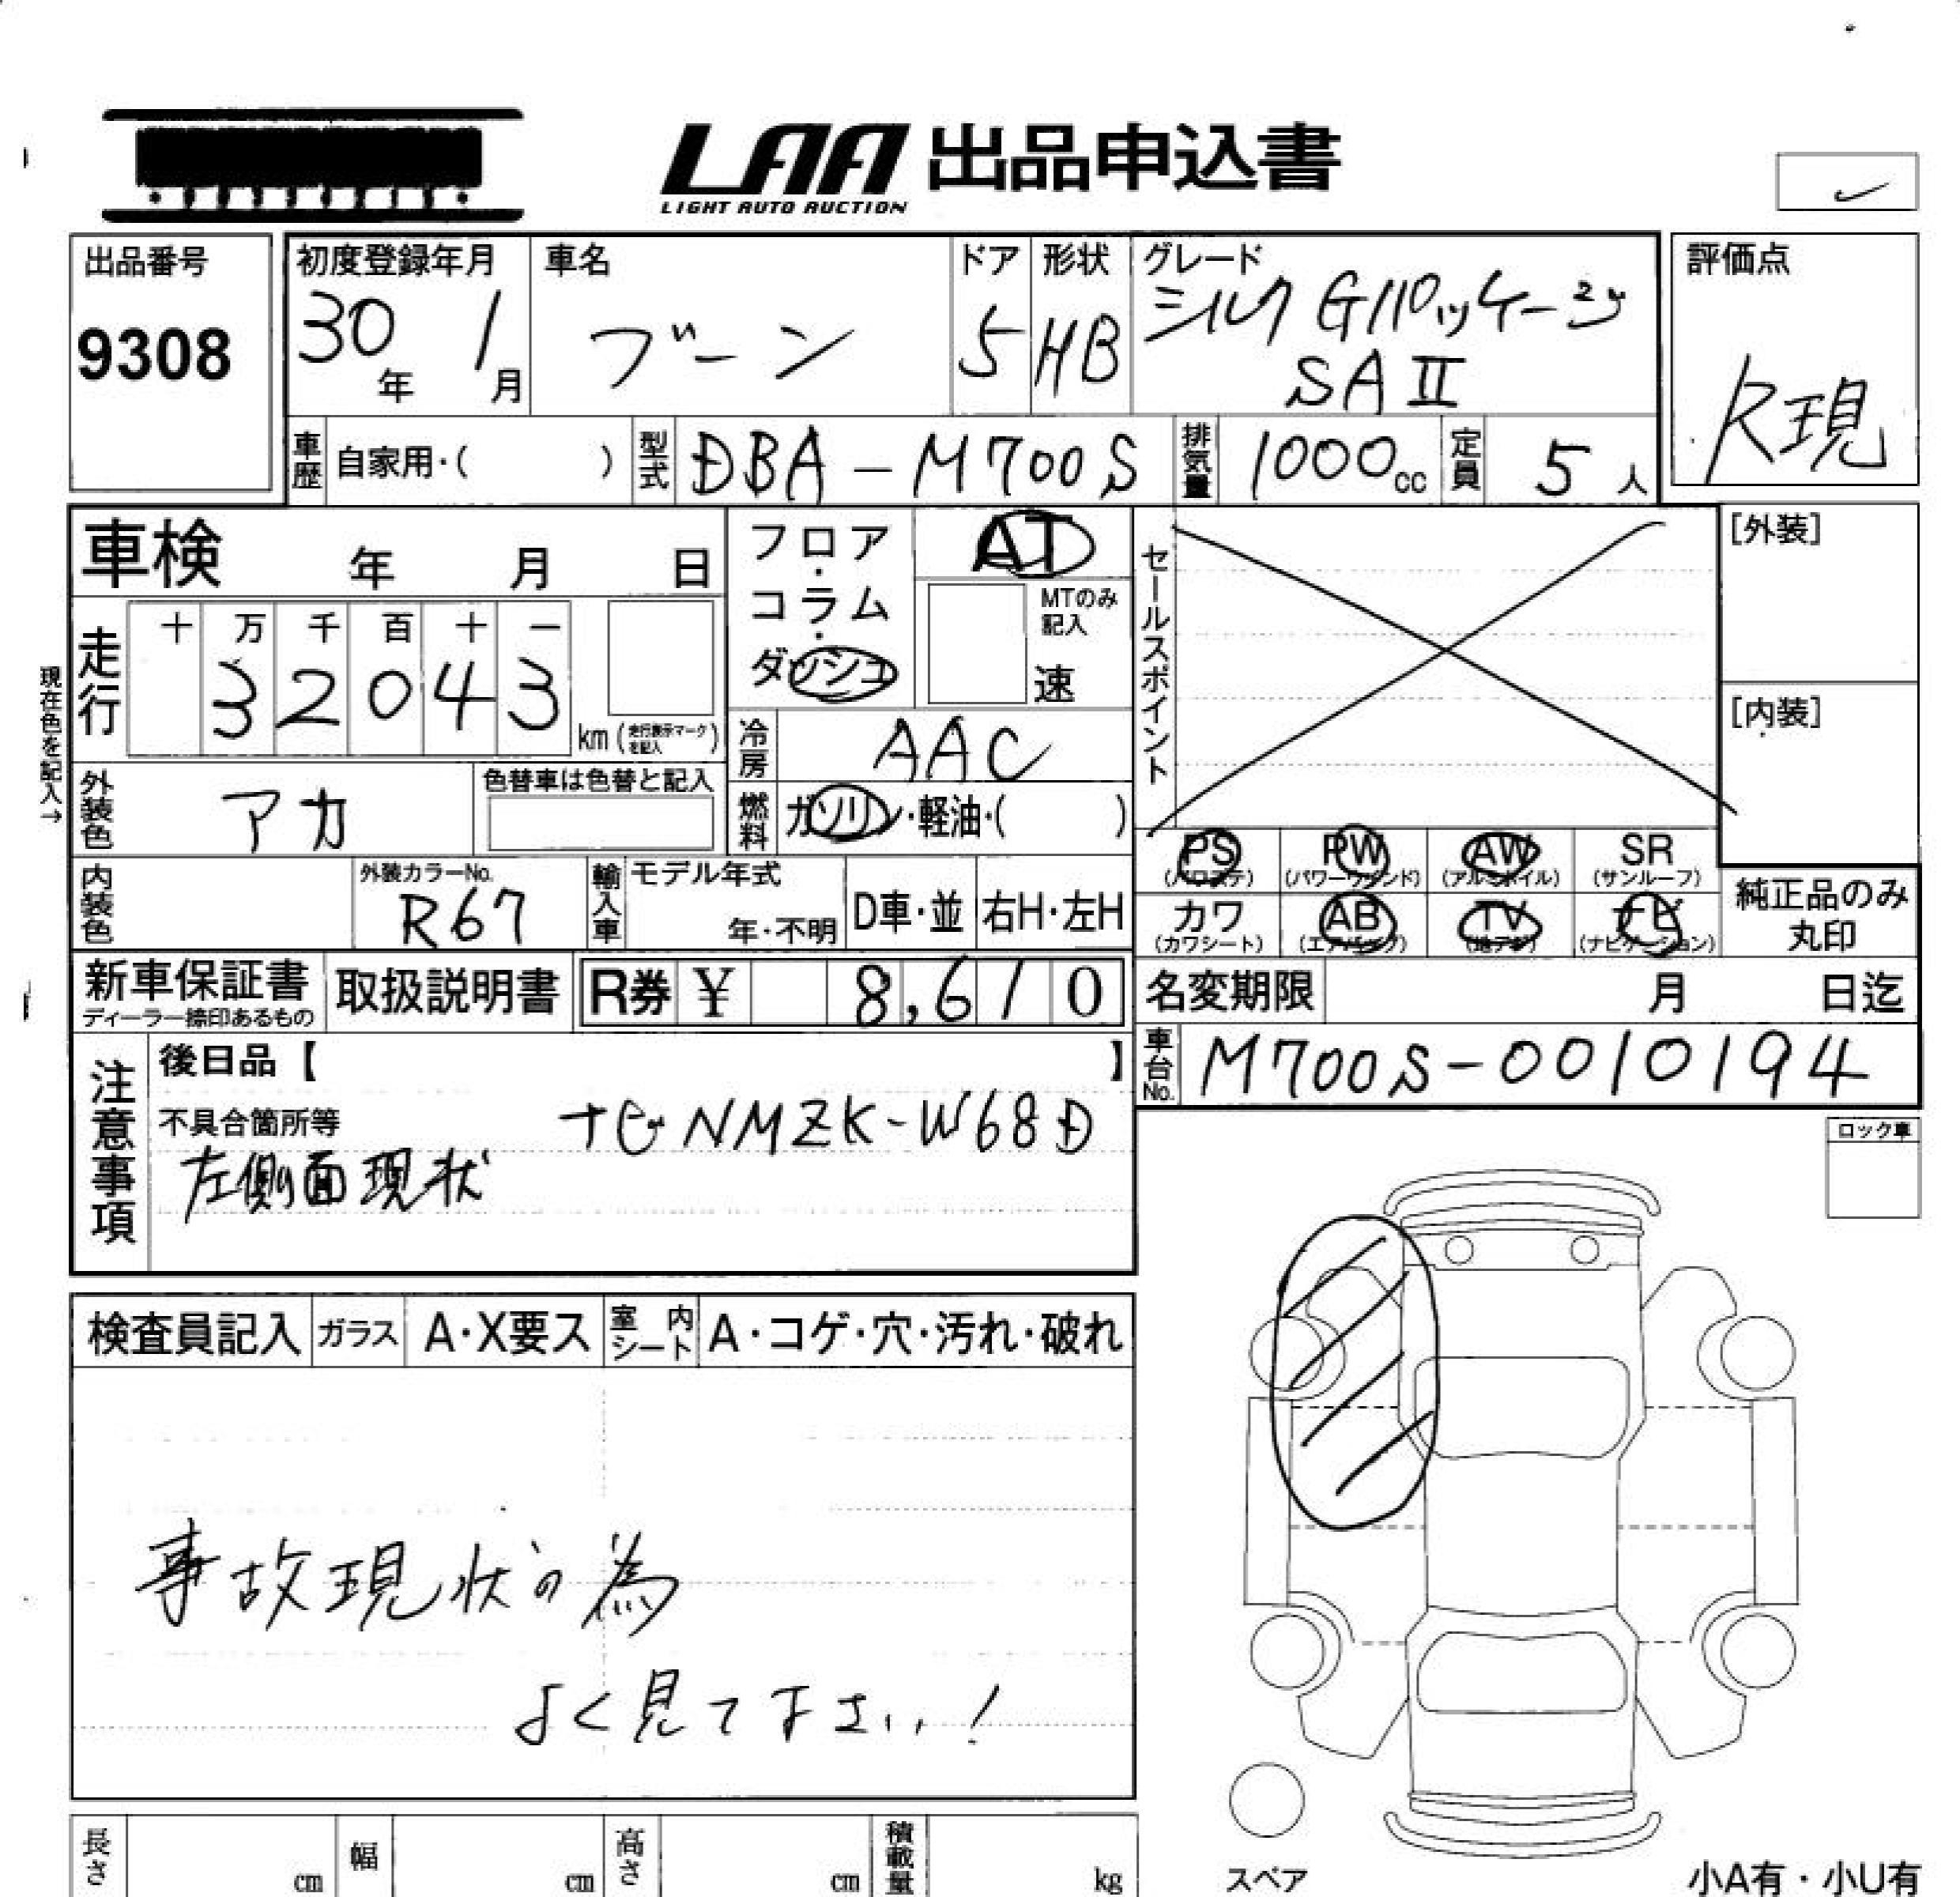 LAA 出品申込書
LIGHT AUTO AUCTION
出品番号
9308
初度登録年月
30年 1月
車名
ブーン
ドア
5
形状
HB
グレード
シルク Gパッケージ
SAⅡ
評価点
R現
車歴 自家用・( )
型式 DBA-M700S
排気量 1000cc
定員 5人
車検 年 月 日
フロア・コラム・ダッシュ
AT
MTのみ記入
速
セールスポイント
[外装]
[内装]
現在色を記入→
走行
十 万 千 百 十 一
3 2 0 4 3
km(走行表示マークを記入)
冷房 AAC
外装色 アカ
色替車は色替と記入
燃料 ガソリン・軽油・( )
内装色
外装カラーNo.
R67
輸入車
モデル年式
年・不明
D車・並
右H・左H
PS
(パワステ)
PW
(パワーウィンド)
AW
(アルミホイル)
SR
(サンルーフ)
カワ
(カワシート)
AB
(エアバッグ)
TV
(地デジ)
ナビ
(ナビゲーション)
純正品のみ
丸印
新車保証書
ディーラー捺印あるもの
取扱説明書
R券 ¥ 8,610
名変期限 月 日迄
車台No. M700S-0010194
注意事項
後日品【 】
不具合箇所等
ナビ NMZK-W68D
左側面現状
ロック車
検査員記入
ガラス A・X要ス
室内シート A・コゲ・穴・汚れ・破れ
事故現状の為
よく見て下さい!
長さ cm
幅 cm
高さ cm
積載量 kg
スペア
小A有・小U有